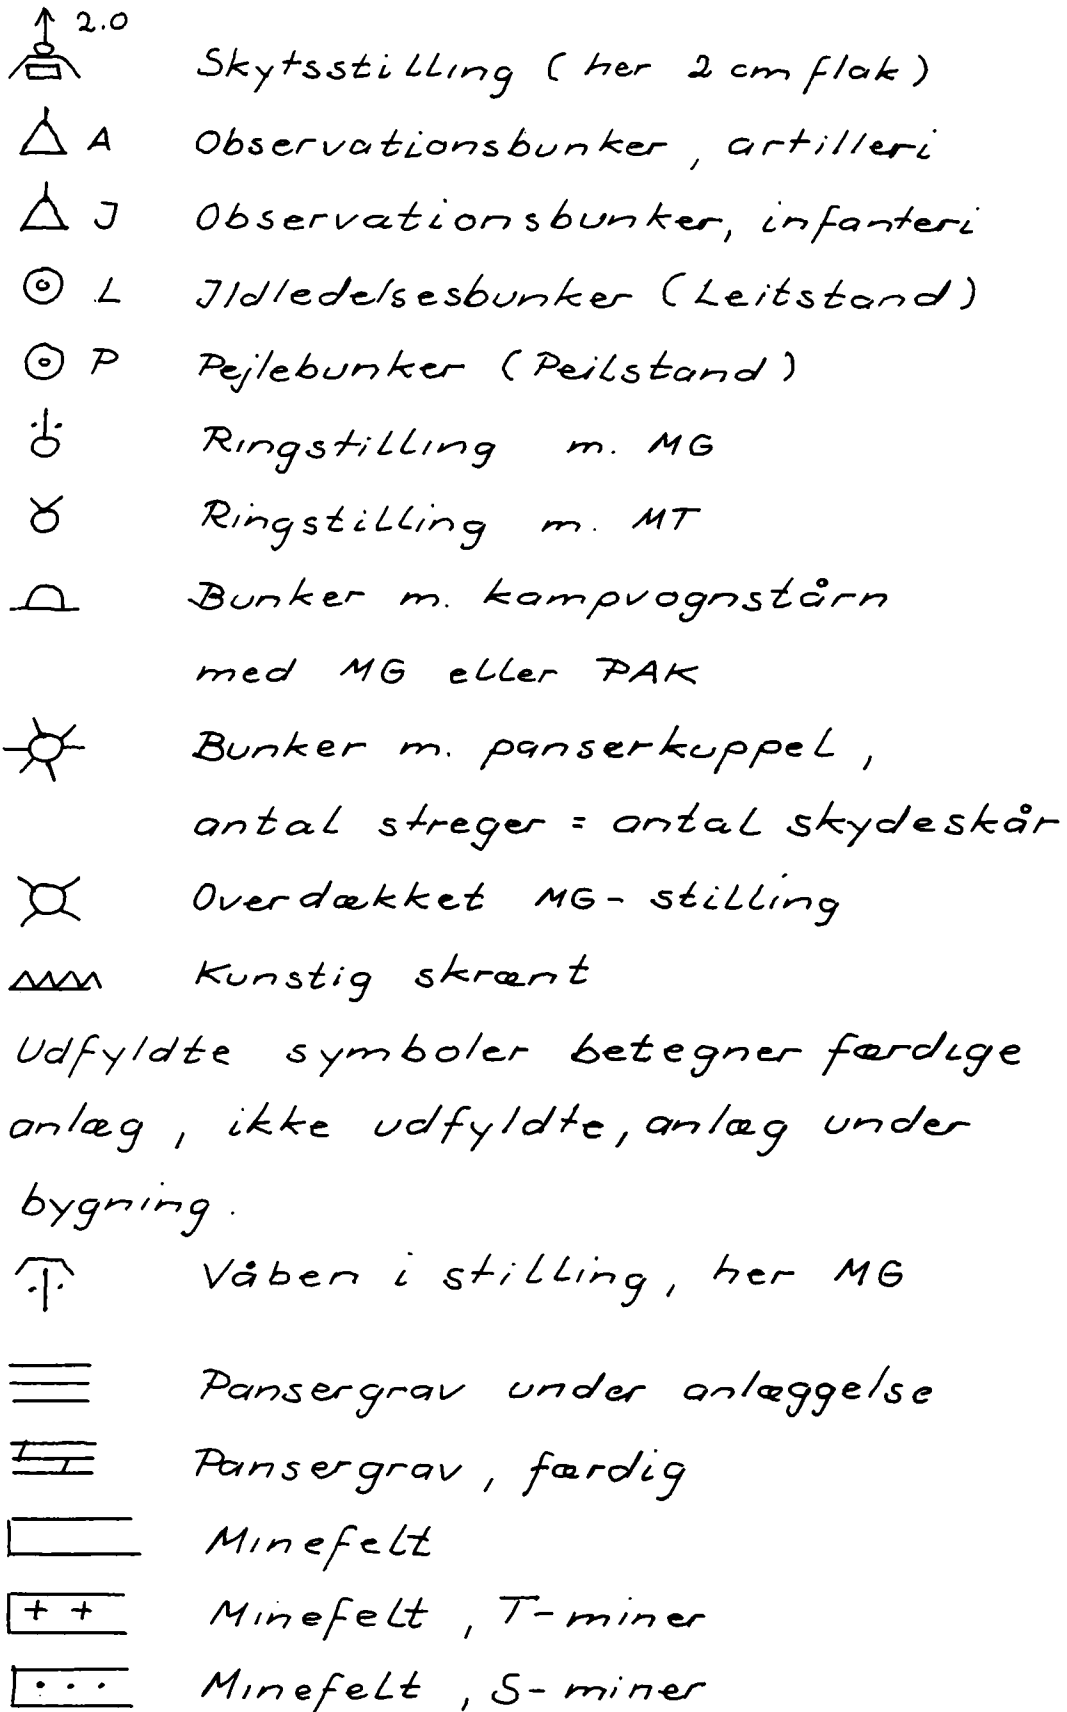 2.0
Skytsstilling (her 2 cm flak)
A Observationsbunker, artilleri
J Observationsbunker, infanteri
L Jldledelsesbunker (Leitstand)
P Pejlebunker (Peilstand)
Ringstilling m. MG
Ringstilling m. MT
Bunker m. kampvognstårn
med MG eller PAK
Bunker m. panserkuppel,
antal streger = antal skydeskår
Overdækket MG-stilling
Kunstig skrænt
Udfyldte symboler betegner færdige
anlæg, ikke udfyldte, anlæg under
bygning.
Våben i stilling, her MG
Pansergrav under anlæggelse
Pansergrav, færdig
Minefelt
Minefelt, T-miner
Minefelt, S-miner